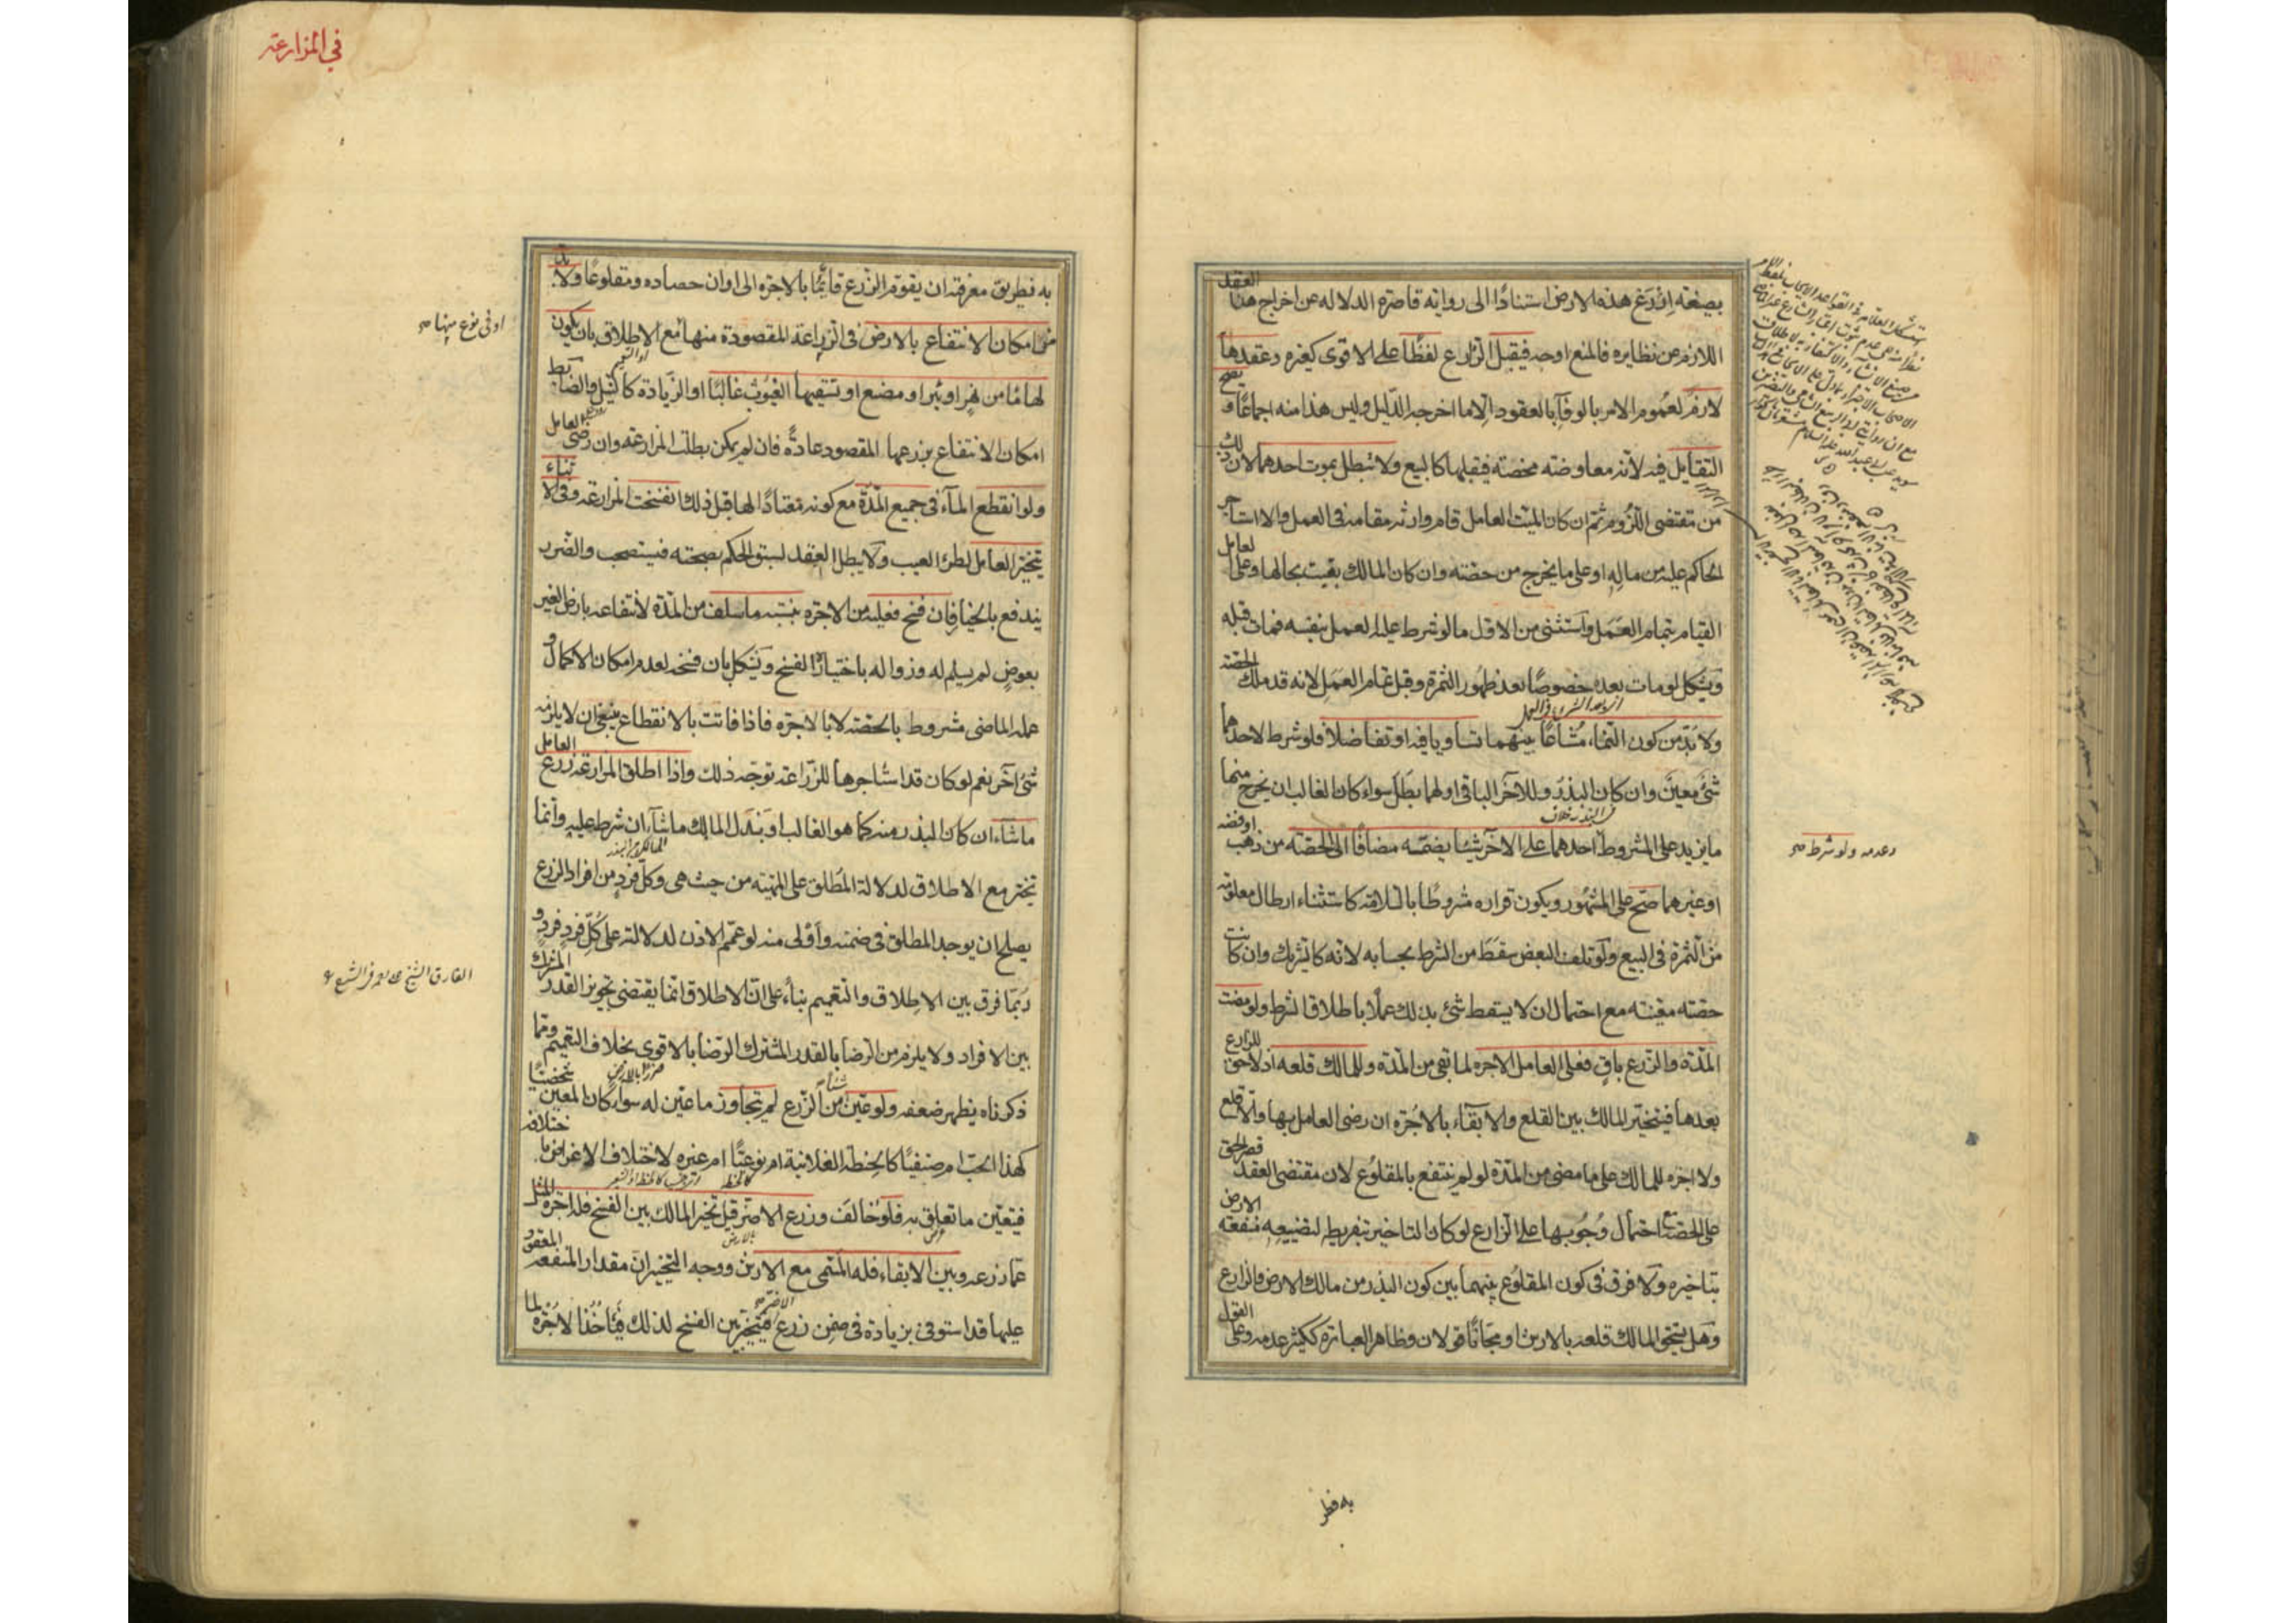 بصيغة ازرع هذه الارض استنادًا الى رواية قاصرة الدلالة عن اخراج هذا العقد
اللازم عن نظايره فالمنع اوجه فيقبل الزارع لفظًا على الاقوى كغيره وعقدها
لازم لعموم الامر بالوفآء بالعقود الّا ما اخرجه الدّليل وليس هذا منه اجماعًا و يصح
التقايل فيه لانّه معاوضة محضة فيقبلها كالبيع ولا تبطل بموت احدهما لان ذلك
من مقتضى اللزوم ثم ان كان الميّت العامل قام وارثه مقامه فى العمل والا استاجر
الحاكم عليه من ماله او على ما يخرج من حصّته وان كان المالك بقيت بحالها وعلى العامل
القيام بتمام العمل واستثنى من الاوّل ما لو شرط عليه العمل بنفسه فمات قبله
ويشكل لو مات بعده خصوصًا بعد ظهور الثمرة وقبل تمام العمل لانه قد ملك الحصّة
ولا بدّ من كون النّماء مشاعًا بينهما تساويا فيه او تفاضلا فلو شرط لاحدهما
شئ معيّن وان كان البذر وللآخر الباقى او لهما بطل سواء كان الغالب ان يخرج منها
ما يزيد على المشروط احدهما على الآخر شيئا يضمّه مضافًا الى الحصّة من ذهب او فضّة
او غيرهما صح على المشهور ويكون قراره مشروطًا بالسّلامة كاستثناء ارطال معلومة
من الثمرة فى البيع ولو تلف البعض سقط من الشرط بحسابه لانّه كالشريك وان كانت
حصّته معيّنة مع احتمال ان لا يسقط شئ بذلك عملًا باطلاق الشرط ولو مضت
المدّة والزّرع باقٍ فعلى العامل الاجرة لما بقى من المدّة وللمالك قلعه اذ لا حق للزارع
بعدها فيتخيّر المالك بين القلع والابقاء بالاجرة ان رضى العامل بها والّا قلع
ولا اجرة للمالك على ما مضى من المدّة لو لم ينتفع بالمقلوع لان مقتضى العقد قصر الحق
على الحصّة مع احتمال وجوبها على الزارع لو كان التاخير بتفريطه لتضييعه منفعة الارض
بتاخيره ولا فرق فى كون المقلوع بينهما بين كون البذر من مالك الارض والزارع
وهل يستحق المالك قلعه بالارش او مجّانًا قولان وظاهر العبارة ككثير عدمه وعلى القول
وعدمه ولو شرط صح
به فطر
فى المزارعة
به فطريق معرفته ان يقوّم الزّرع قايمًا بالاجرة الى اوان حصاده ومقلوعًا ولا بد
من امكان الانتفاع بالارض فى الزراعة المقصودة منها مع الاطلاق بان يكون
او فى نوع منها صح
لها مآء من نهر او بئر او مصنع او تسقيها الغيوث غالبًا او الزّيادة كالنيل والضابط
امكان الانتفاع بزرعها المقصود عادةً فان لم يمكن بطلت المزارعة وان رضى العامل
ولو انقطع المآء فى جميع المدّة مع كونه معتادًا لها قبل ذلك انفسخت المزارعة وفى الاثناء
يتخيّر العامل لطرؤ العيب ولا يبطل العقد لسبق الحكم بصحته فيستصحب والضّرر
يندفع بالخيار فان فسخ فعليه من الاجرة بنسبة ما سلف من المدّة لانتفاعه بارض الغير
بعوض لم يسلم له وزواله باختياره الفسخ ويشكل بان فسخه لعدم امكان الاكمال و
عمله الماضى مشروط بالحصّة لا بالاجرة فاذا فاتت بالانقطاع ينبغى ان لا يلزمه
شئ آخر نعم لو كان قد استاجرها للزّراعة توجّه ذلك واذا اطلق المزارعة زرع العامل
ما شآء ان كان البذر منه كما هو الغالب او بذل المالك ما شآء ان شرط عليه وانّما
تخيّر مع الاطلاق لدلالة المطلق على المهيّة من حيث هى وكل فرد من افراد الزرع
يصلح ان يوجد المطلق فى ضمنه واولى منه لو عمّم الاذن لدلالته على كلّ فرد فرد و
ربّما فرق بين الاطلاق والتعميم بنآء على انّ الاطلاق انما يقتضى تجويز القدر المشترك
بين الافراد ولا يلزم من الرّضا بالقدر المشترك الرّضا بالاقوى بخلاف التعميم وممّا
ذكرناه يظهر ضعفه ولو عيّن شيئا من الزّرع لم يتجاوز ما عيّن له سوآء كان المعيّن شخصيّا
كهذا الحبّ ام صنفيًّا كالحنطة الفلانية ام نوعيًّا ام غيره لاختلاف الاغراض باختلافه
فيتعيّن ما تعلّق به فلو خالف وزرع الاضرّ قيل تخيّر المالك بين الفسخ فله اجرة المثل
عمّا زرعه وبين الابقاء فله المسمّى مع الارش ووجه التخيير انّ مقدار المنفعة المعقود
عليها قد استوفى بزيادة فى ضمن زرع الاضرّ فيتخيّر بين الفسخ لذلك فياخذ الاجرة لما